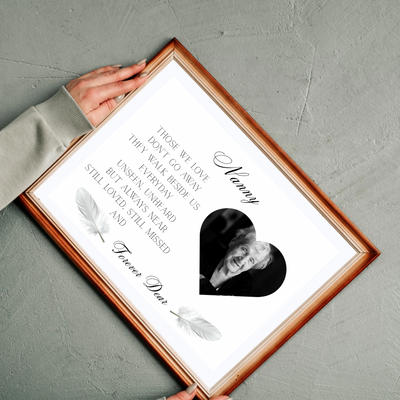 Nanny
THOSE WE LOVE
DON'T GO AWAY
THEY WALK BESIDE US
EVERYDAY
UNSEEN, UNHEARD
BUT ALWAYS NEAR
STILL LOVED, STILL MISSED
AND
Forever Dear